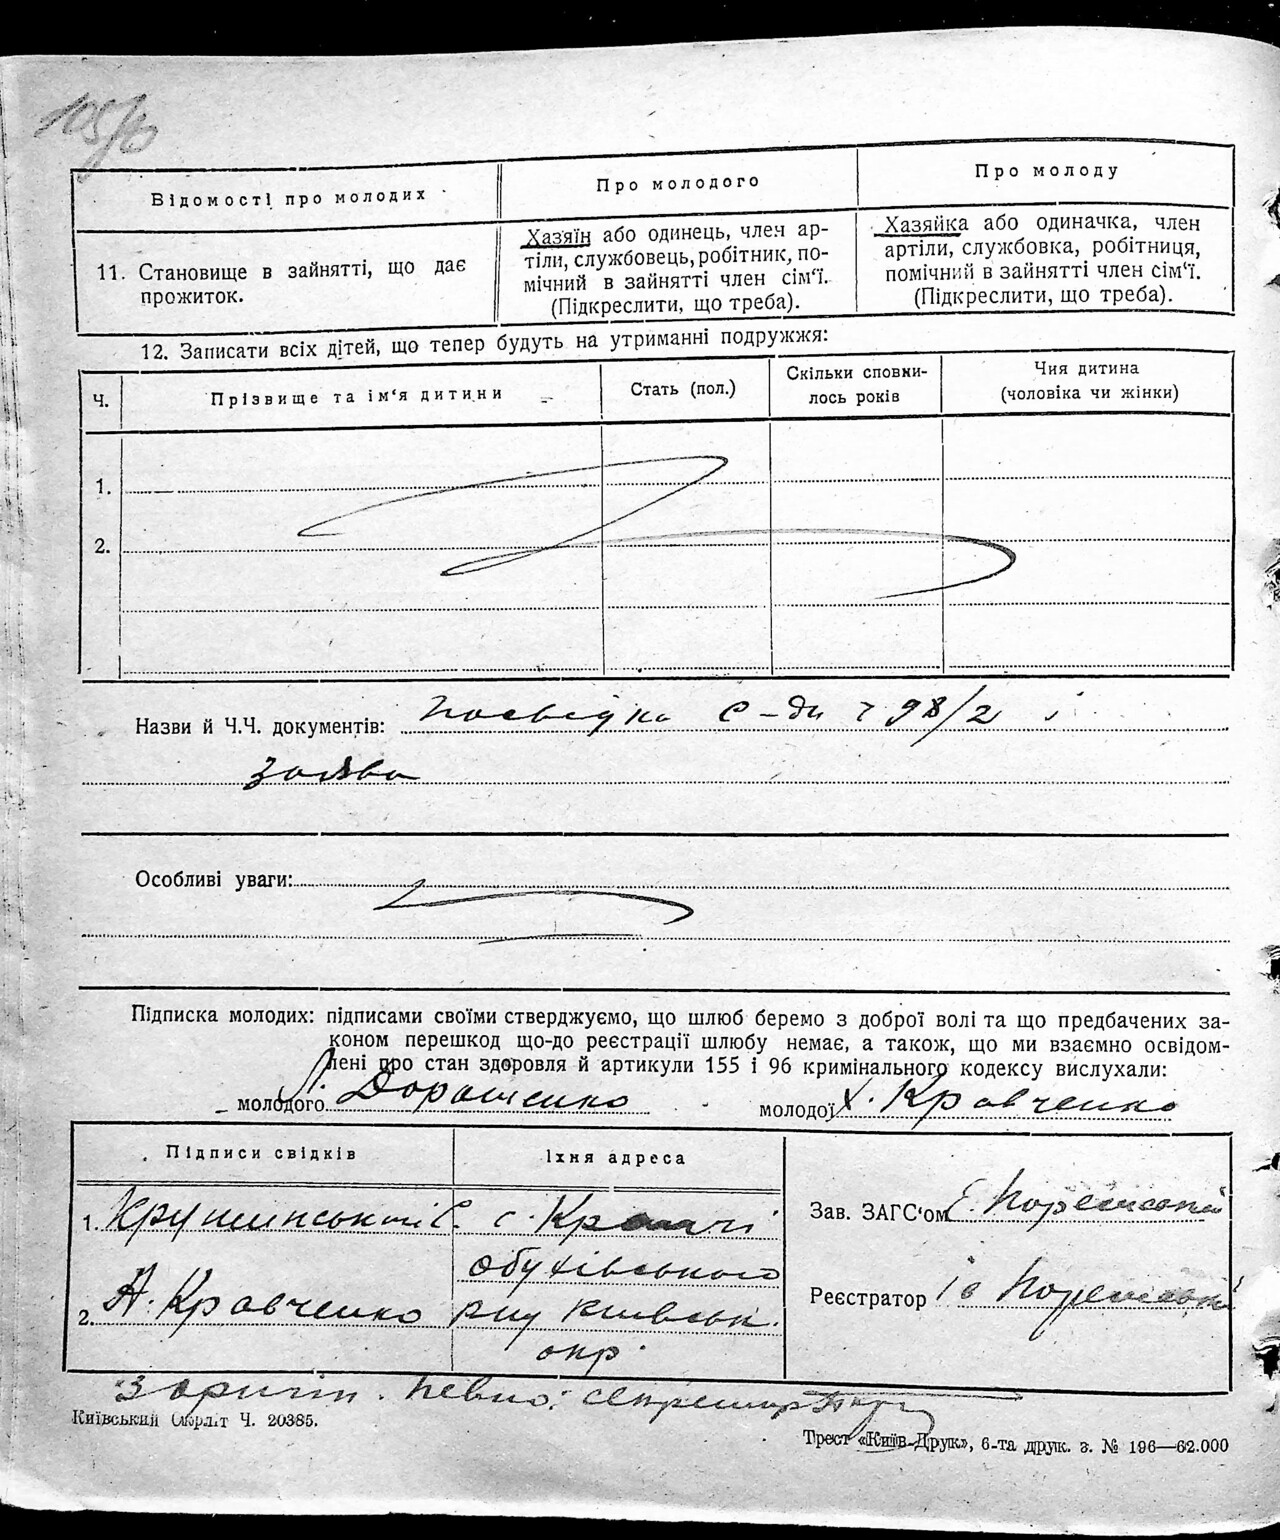 105/40
Відомості про молодих
Про молодого
Про молоду
11. Становище в зайнятті, що дає
прожиток.
Хазяїн або одинець, член ар-
тіли, службовець, робітник, по-
мічний в зайнятті член сім'ї.
(Підкреслити, що треба).
Хазяйка або одиначка, член
артіли, службовка, робітниця,
помічний в зайнятті член сім'ї.
(Підкреслити, що треба).
12. Записати всіх дітей, що тепер будуть на утриманні подружжя:
Ч.
Прізвище та ім'я дитини
Стать (пол.)
Скільки сповни-
лось років
Чия дитина
(чоловіка чи жінки)
1.
2.
Назви й Ч.Ч. документів: Посвідка с-ди ч 98/2 і
заява
Особливі уваги:
Підписка молодих: підписами своїми стверджуємо, що шлюб беремо з доброї волі та що предбачених за-
коном перешкод що-до реєстрації шлюбу немає, а також, що ми взаємно освідом-
лені про стан здоровля й артикули 155 і 96 кримінального кодексу вислухали:
молодого Дорошенко молодої Х. Кравченко
Підписи свідків
Їхня адреса
1. Крушинський С. с.
Обухівського
2. А. Кравченко р-ну Київськ.
окр.
Зав. ЗАГС'ом
Реєстратор
З оригін. певно: секретар
Київський Окрліт Ч. 20385.
Трест «Київ-Друк», 6-та друк. з. № 196—62.000